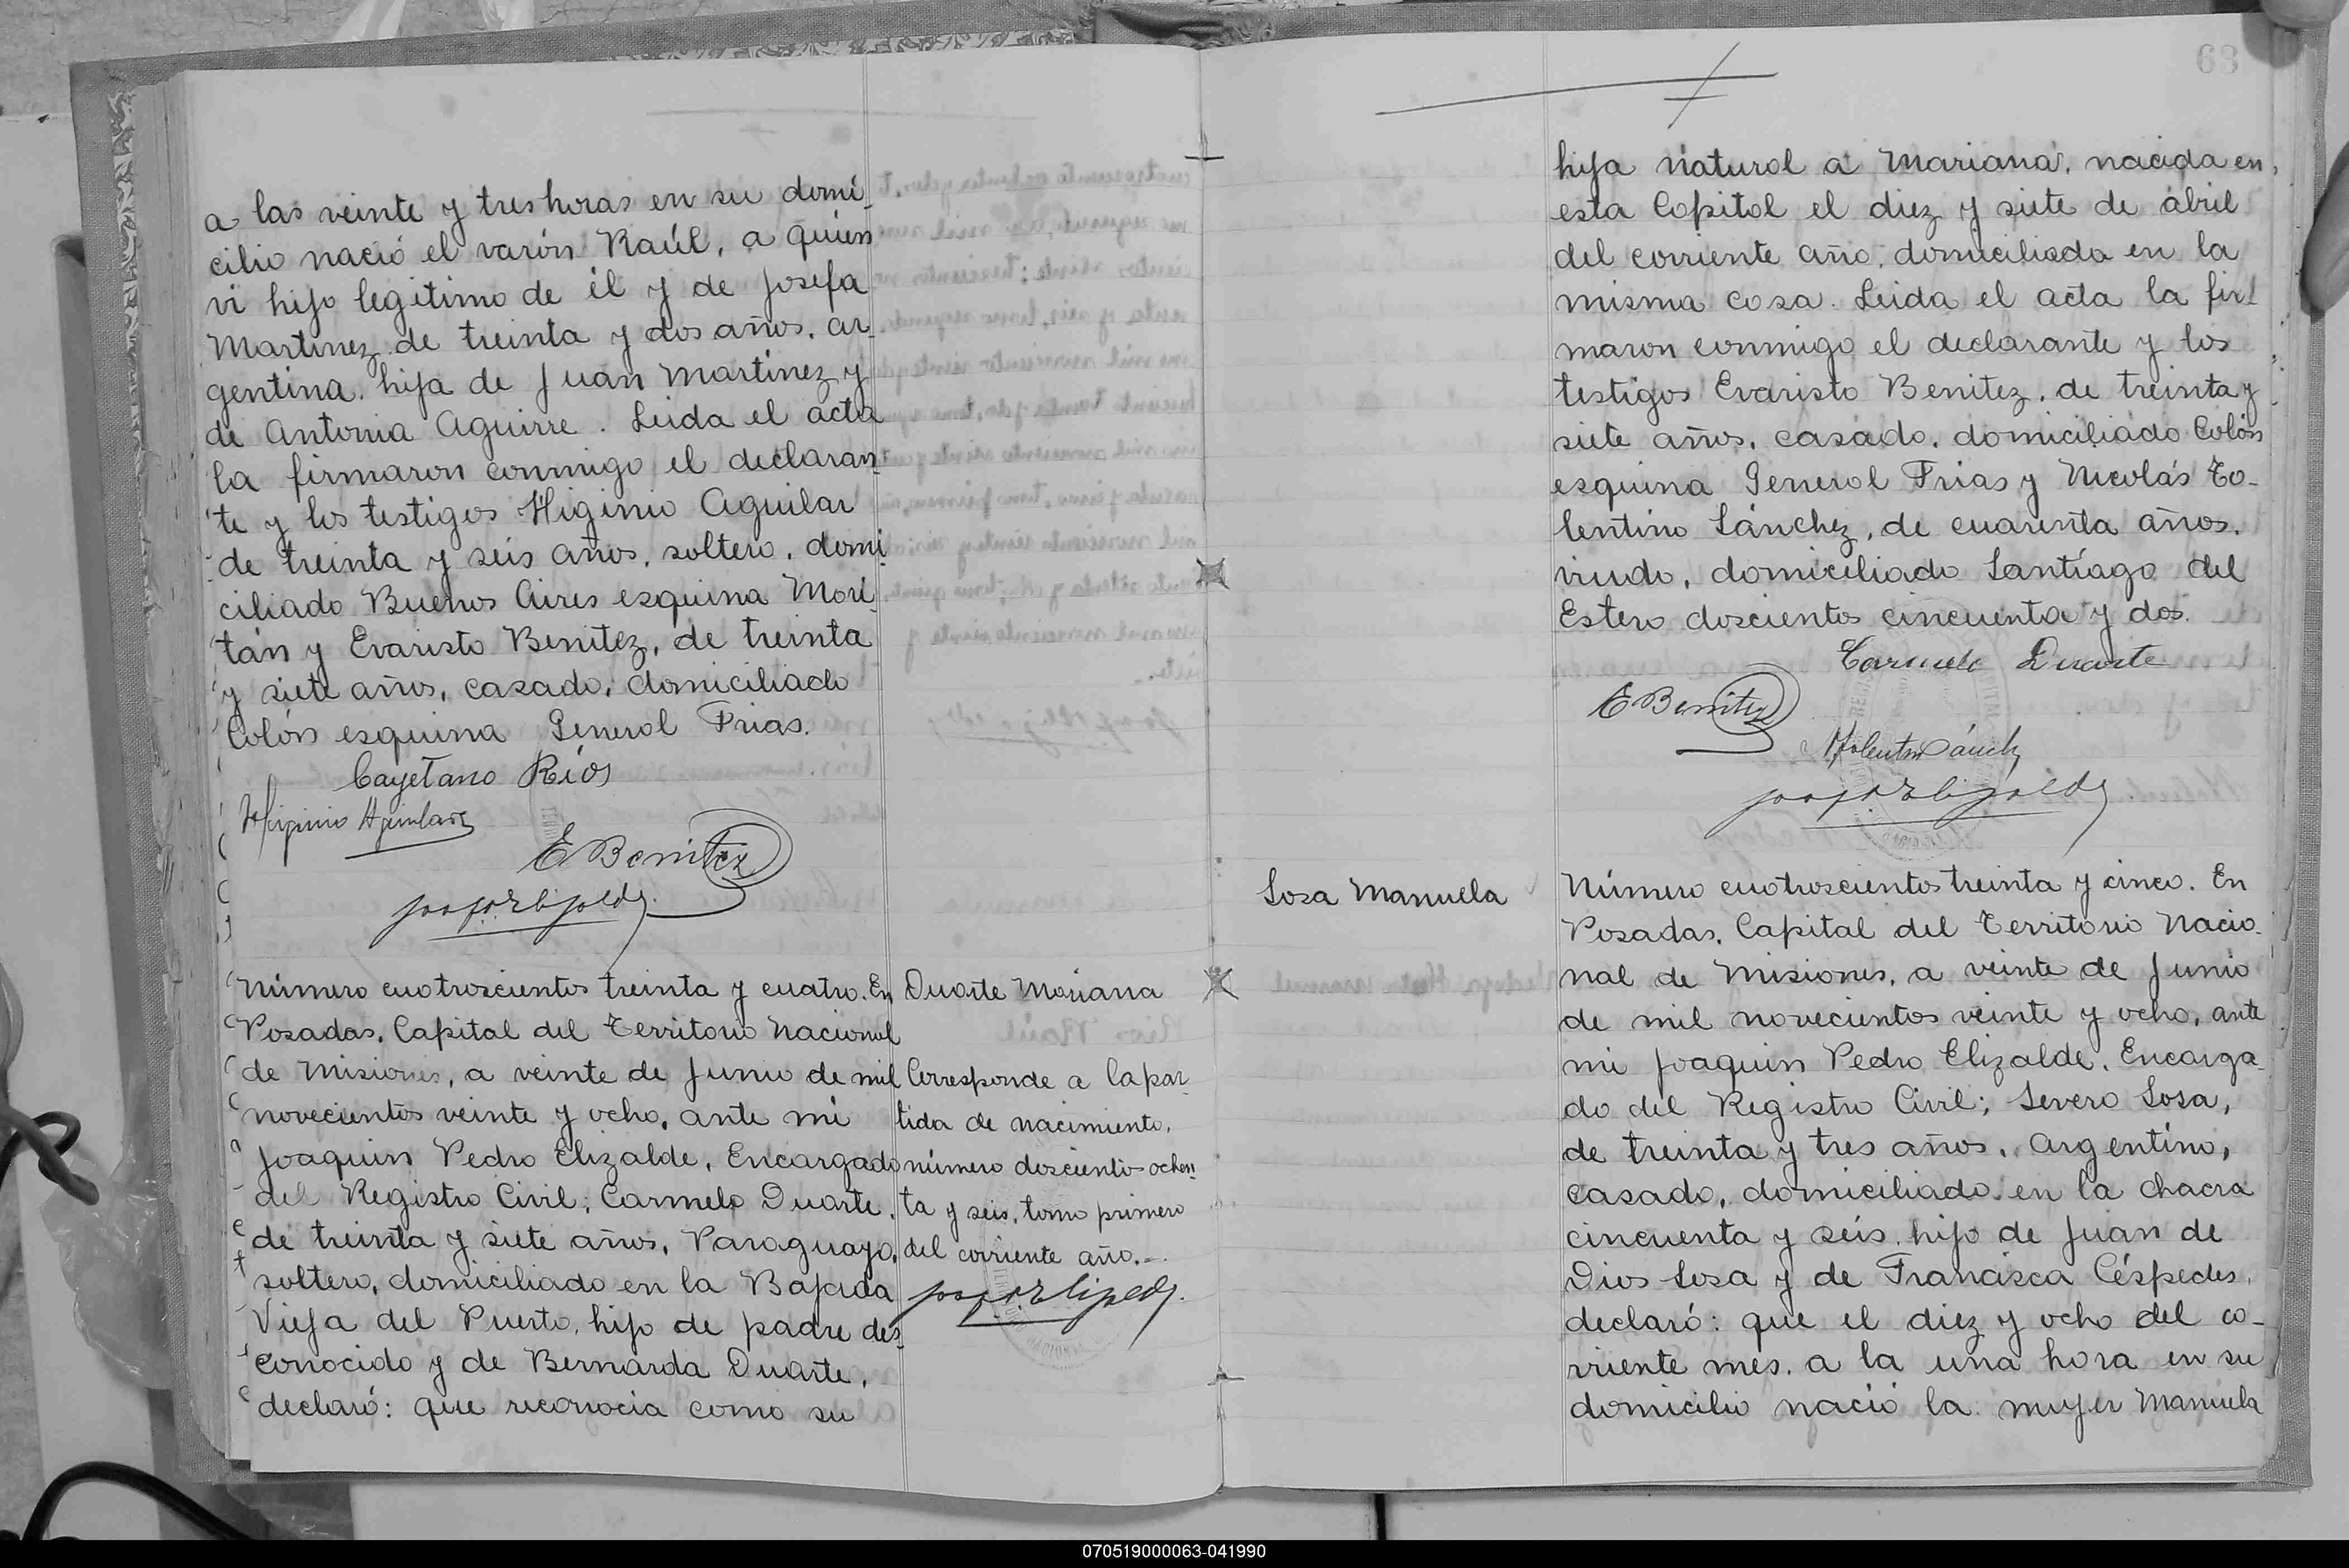 a las veinte y tres horas en su domi_
cilio nació el varón Raúl, a quien
vi hijo legítimo de él y de Josefa
Martinez de treinta y dos años, ar_
gentina, hija de Juan Martínez y
de Antonia Aguirre. Leida el acta
la firmaron conmigo el declaran_
te y los testigos Higinio Aguilar
de treinta y seis años, soltero, domi_
ciliado Buenos Aires esquina Mori_
tán y Evaristo Benitez, de treinta
y siete años, casado, domiciliado
Colón esquina General Frias.
Cayetano Ríos
Higinio Aguilar
E Benitez
Número cuotroscientos treinta y cuatro. En
Posadas, Capital del Territorio Nacional
de Misiones, a veinte de Junio de mil
novecientos veinte y ocho, ante mi
Joaquin Pedro Elizalde, Encargado
del Registro Civil; Carmelo Duarte,
de treinta y siete años, Paraguayo,
soltero, domiciliado en la Bajada
Vieja del Puerto, hijo de padre des_
conocido y de Bernarda Duarte,
declaró: que reconocia como su
Duarte Mariana
Corresponde a la par_
tida de nacimiento,
número doscientos ochen_
ta y seis, tomo primero
del corriente año.=
63
hija natural a Mariana, nacida en
esta Capital el diez y siete de abril
del corriente año, domiciliada en la
misma casa. Leida el acta la fir_
maron conmigo el declarante y los
testigos Evaristo Benitez, de treinta y
siete años, casado, domiciliado Colón
esquina General Frias y Nicolás To_
lentino Sánchez, de cuarenta años,
viudo, domiciliado Santiago del
Estero doscientos cincuenta y dos.
Carmelo Duarte
E Benitez
NTolentino Sánchez
Sosa Manuela
Número cuotroscientos treinta y cinco. En
Posadas, Capital del Territorio Nacio_
nal de Misiones, a veinte de Junio
de mil novecientos veinte y ocho, ante
mi Joaquin Pedro Elizalde, Encarga_
do del Registro Civil; Severo Sosa,
de treinta y tres años, argentino,
casado, domiciliado en la chacra
cincuenta y seis, hijo de Juan de
Dios Sosa y de Francisca Céspedes,
declaró: que el diez y ocho del co_
rriente mes, a la una hora en su
domicilio nació la mujer Manuela
070519000063-041990